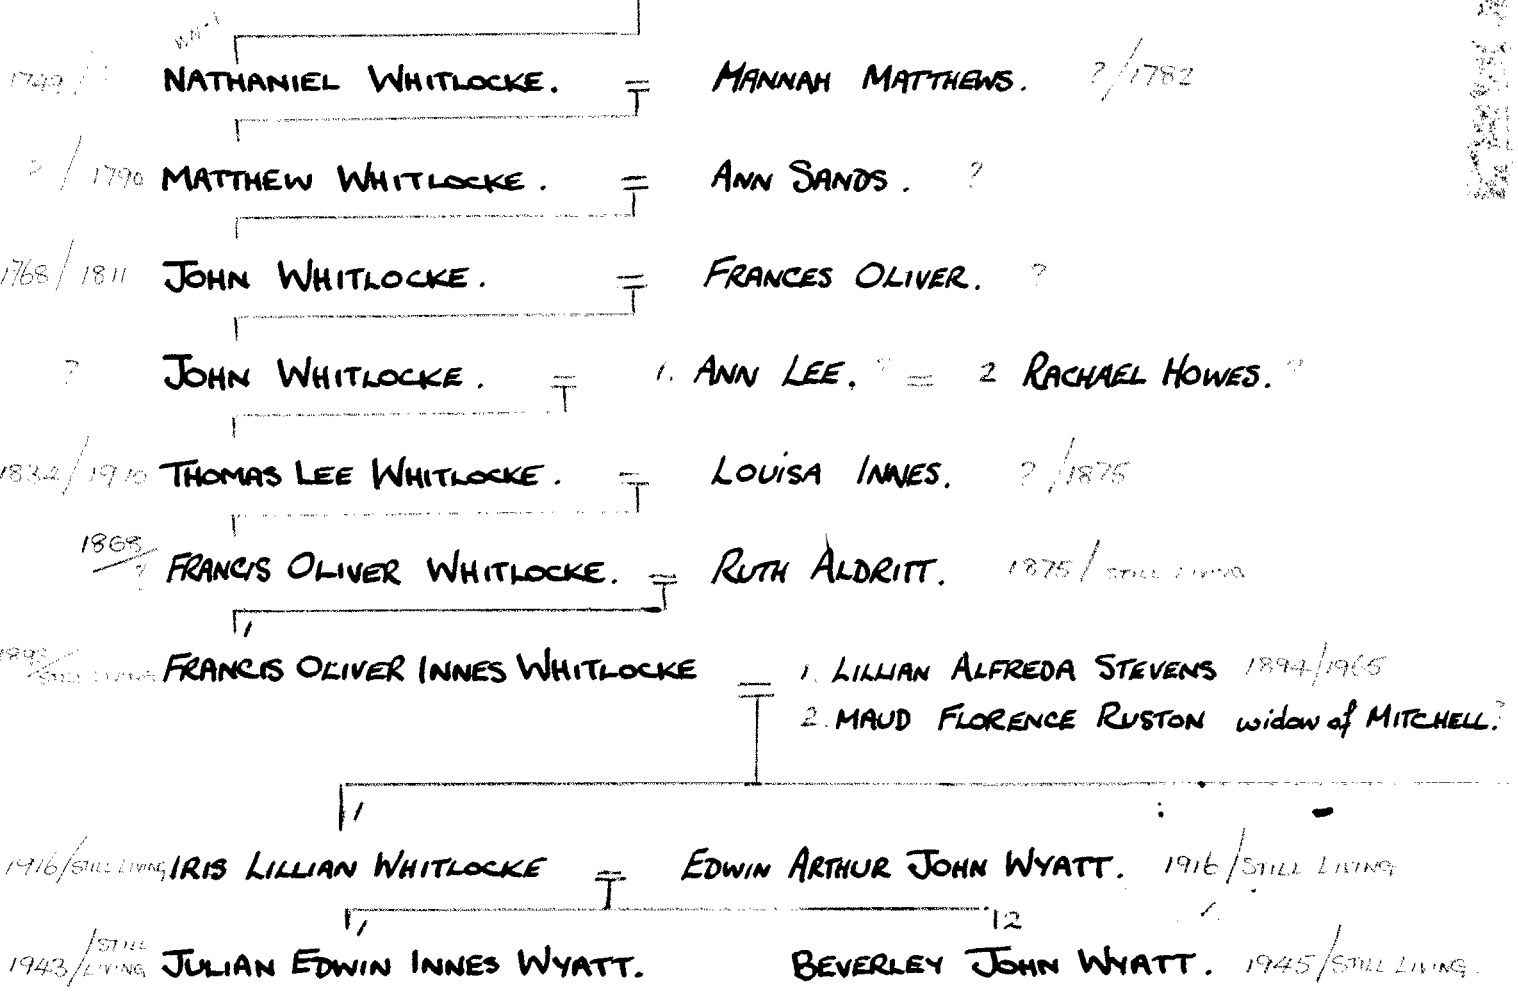 NATHANIEL WHITLOCKE. = HANNAH MATTHEWS. ?/1782
? / 1790 MATTHEW WHITLOCKE. = ANN SANDS. ?
1768/1811 JOHN WHITLOCKE. = FRANCES OLIVER. ?
? JOHN WHITLOCKE. = 1. ANN LEE. ? = 2 RACHAEL HOWES. ?
1832/1910 THOMAS LEE WHITLOCKE. = LOUISA INNES. ?/1875
1868/? FRANCIS OLIVER WHITLOCKE. = RUTH ALDRITT. 1875/STILL LIVING
STILL LIVING FRANCIS OLIVER INNES WHITLOCKE = 1. LILLIAN ALFREDA STEVENS 1894/1965
2. MAUD FLORENCE RUSTON widow of MITCHELL.?
1
1916/STILL LIVING IRIS LILLIAN WHITLOCKE = EDWIN ARTHUR JOHN WYATT. 1916/STILL LIVING
1 2
1943/STILL LIVING JULIAN EDWIN INNES WYATT. BEVERLEY JOHN WYATT. 1945/STILL LIVING.